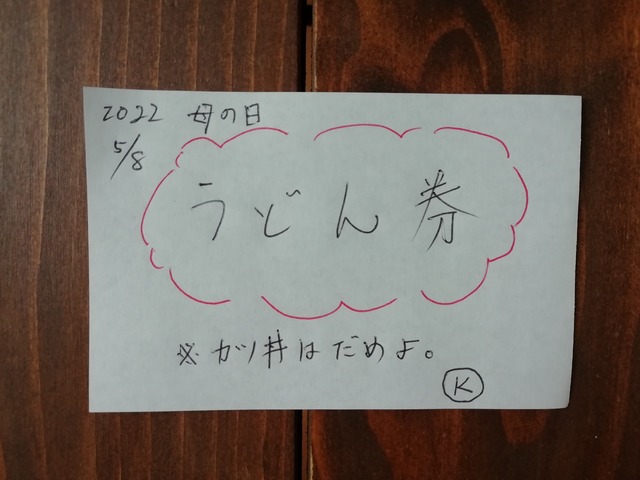 2022 母の日
5/8
うどん券
※カツ丼はだめよ。
K